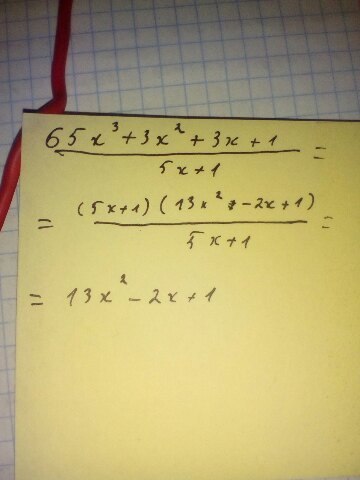 65x³+3x²+3x+1
5x+1 =
= (5x+1)(13x²-2x+1)
5x+1 =
= 13x²-2x+1